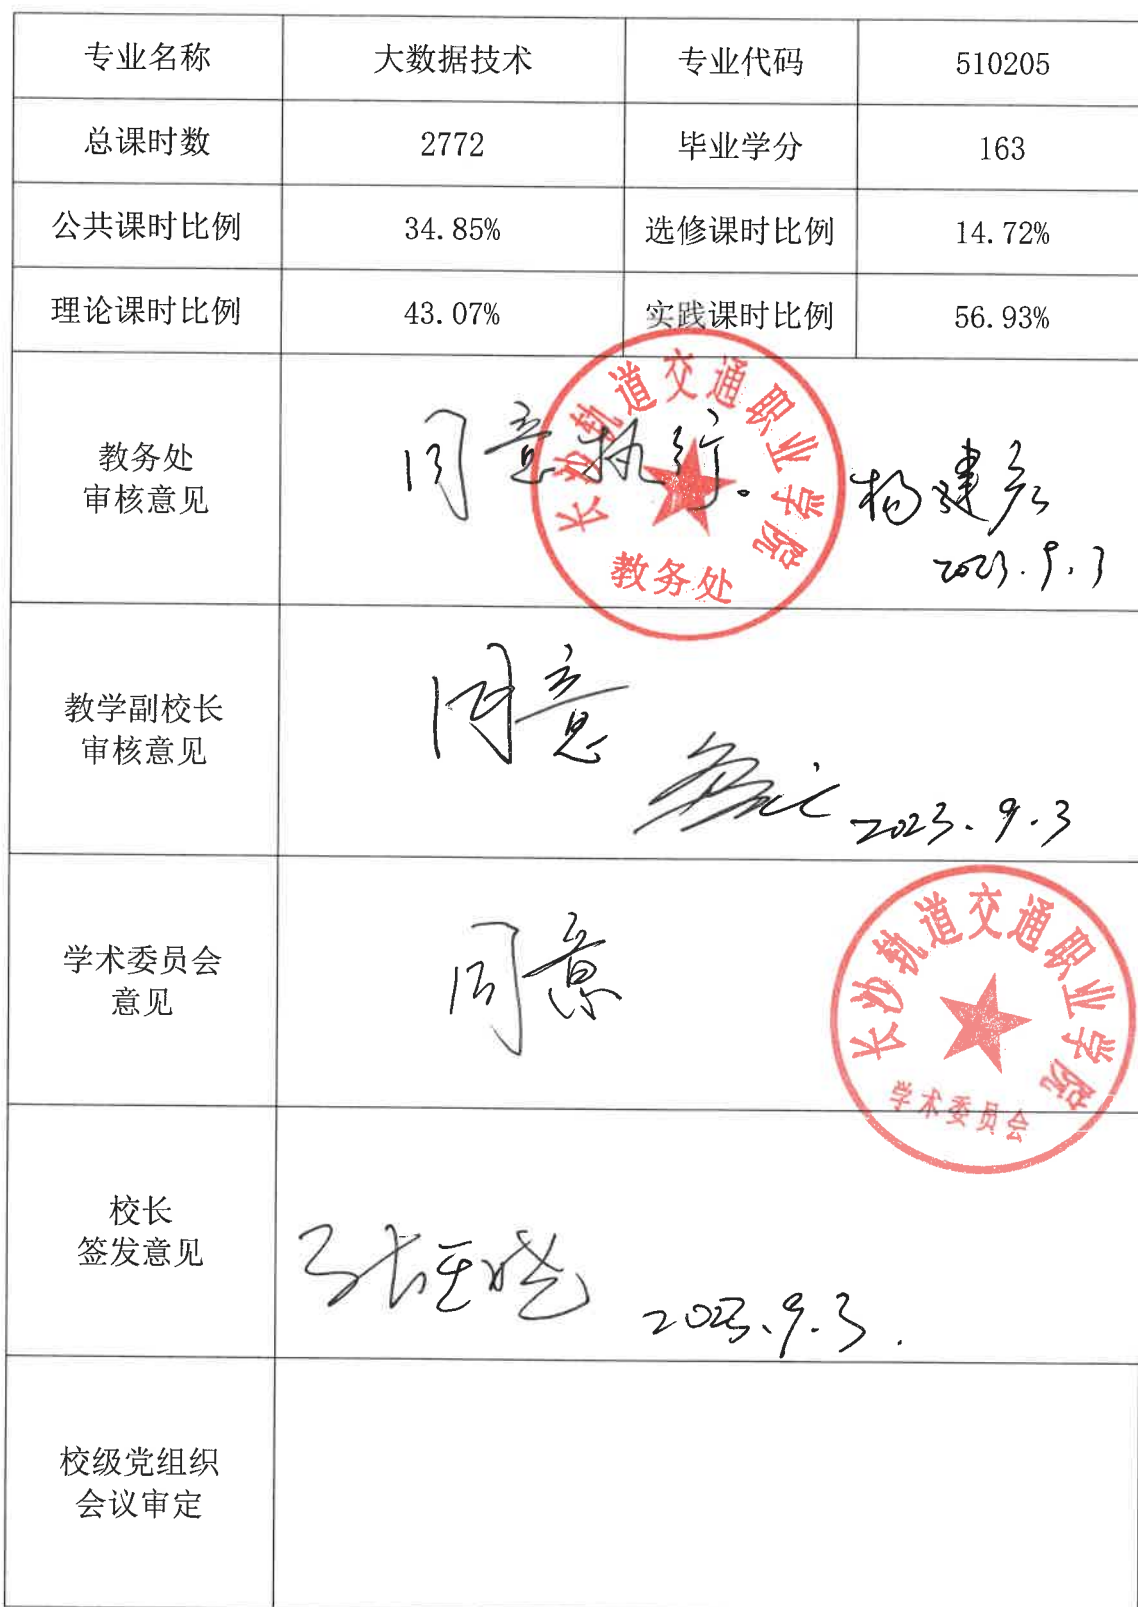 专业名称 大数据技术 专业代码 510205
总课时数 2772 毕业学分 163
公共课时比例 34.85% 选修课时比例 14.72%
理论课时比例 43.07% 实践课时比例 56.93%
教务处
审核意见
同意执行。
长沙轨道交通职业学院
教务处
杨建宏
2023.9.3
教学副校长
审核意见
同意
2023.9.3
学术委员会
意见
同意
长沙轨道交通职业学院
学术委员会
校长
签发意见
2023.9.3.
校级党组织
会议审定